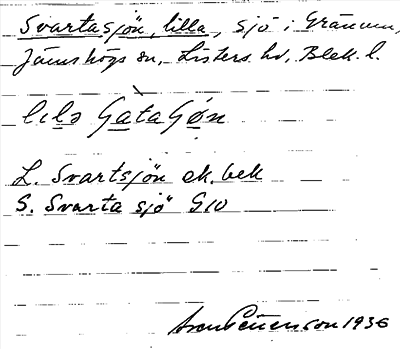 Svartasjön, lilla, sjö i Gränum,
Jämshögs sn, Listers hd, Blek. l.
lilə
L. Svartsjön ek. bek
S. Svarta sjö G10
Sven Petterson 1936